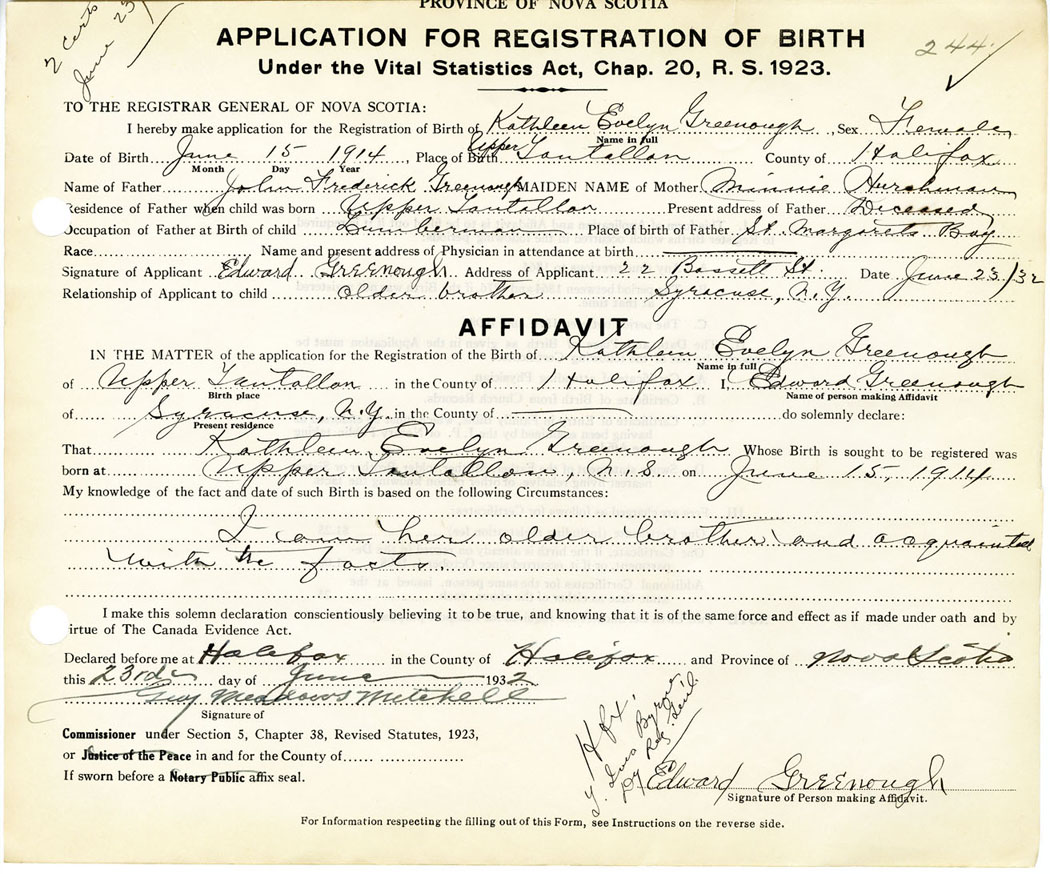 PROVINCE OF NOVA SCOTIA
2 certs
June 23
244
APPLICATION FOR REGISTRATION OF BIRTH
Under the Vital Statistics Act, Chap. 20, R. S. 1923.
TO THE REGISTRAR GENERAL OF NOVA SCOTIA:
I hereby make application for the Registration of Birth of Kathleen Evelyn Greenough, Sex Female
Name in full
Date of Birth June 15 1914, Place of Birth Upper Tantallon County of Halifax
Month Day Year
Name of Father John Frederick Greenough MAIDEN NAME of Mother Minnie Hurshman
Residence of Father when child was born Upper Tantallon Present address of Father Deceased
Occupation of Father at Birth of child Lumberman Place of birth of Father St. Margarets Bay
Race Name and present address of Physician in attendance at birth
Signature of Applicant Edward Greenough Address of Applicant 22 Bassett St. Date June 23/32
Relationship of Applicant to child older brother Syracuse, N.Y.
AFFIDAVIT
IN THE MATTER of the application for the Registration of the Birth of Kathleen Evelyn Greenough
Name in full
of Upper Tantallon in the County of Halifax I, Edward Greenough
Birth place Name of person making Affidavit
of Syracuse, N.Y. in the County of do solemnly declare:
Present residence
That Kathleen Evelyn Greenough Whose Birth is sought to be registered was
born at Upper Tantallon, N.S on June 15, 1914
My knowledge of the fact and date of such Birth is based on the following Circumstances:
I am her older brother and acquainted
with the facts.
I make this solemn declaration conscientiously believing it to be true, and knowing that it is of the same force and effect as if made under oath and by
irtue of The Canada Evidence Act.
Declared before me at Halifax in the County of Halifax and Province of Nova Scotia
this 23rd day of June 1932
Guy Meadows Mitchell
Signature of
Commissioner under Section 5, Chapter 38, Revised Statutes, 1923,
or Justice of the Peace in and for the County of
If sworn before a Notary Public affix seal.
Hfx
Byrne
Dy Reg. Genl.
Edward Greenough
Signature of Person making Affidavit.
For Information respecting the filling out of this Form, see Instructions on the reverse side.